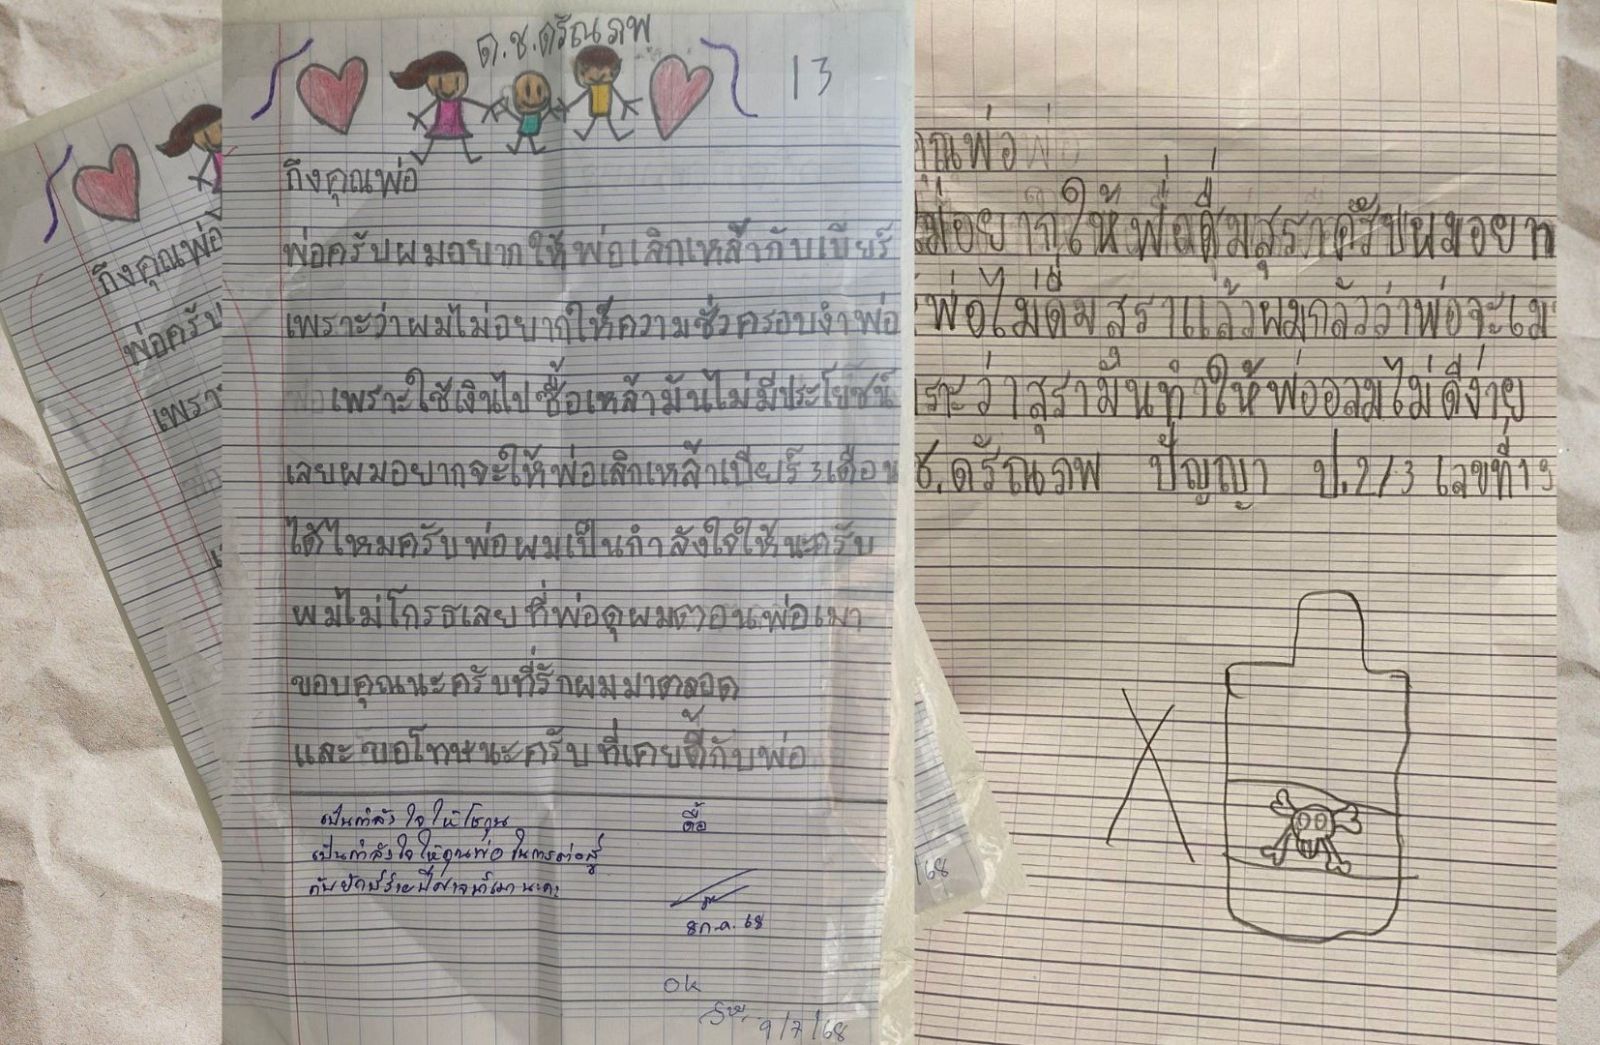 ถึงคุณพ่อ
พ่อครับ
เพรา
ด.ช.ดรัณภพ
13
ถึงคุณพ่อ
พ่อครับผมอยากให้พ่อเลิกเหล้ากับเบียร์
เพราะว่าผมไม่อยากให้ความชั่วครอบงำพ่อ
เพราะใช้เงินไปซื้อเหล้ามันไม่มีประโยชน์
เลยผมอยากจะให้พ่อเลิกเหล้าเบียร์ 3 เดือน
ได้ไหมครับพ่อผมเป็นกำลังใจให้นะครับ
ผมไม่โกรธเลยที่พ่อดุผมตอนพ่อเมา
ขอบคุณนะครับที่รักผมมาตลอด
และขอโทษนะครับที่เคยดื้กับพ่อ
เป็นกำลังใจให้ ดื้อ
เป็นกำลังใจให้คุณพ่อในการต่อสู้
8 ก.ค. 68
ok
9/7/68
/68
คุณพ่อพ่อ
อยากให้พ่อดื่มสุราครับผมอยาก
พ่อไม่ดื่มสุราแล้วผมกลัวว่าพ่อจะเม
ราะว่าสุรามันทำให้พ่ออลมไม่ดีง่าย
ช.ดรัณภพ ปัญญา ป.2/3 เลขที่ 13